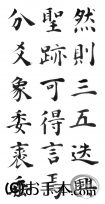 然則三五迭
聖跡可得言焉
分爻象委裘
(C)お手本.com